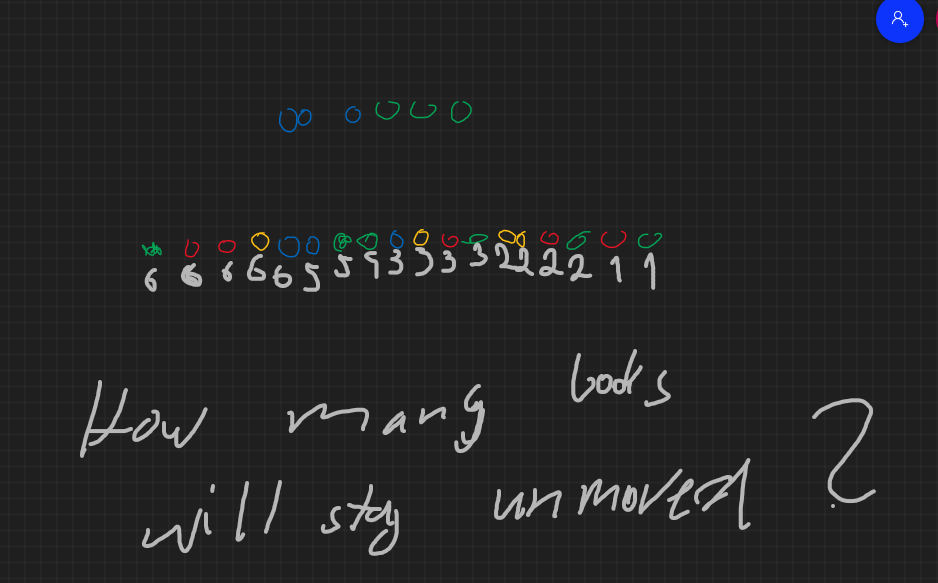 6 6 6 6 6 5 5 9 3 3 3 3 2 2 2 2 1 1
How many books
will stay unmoved ?